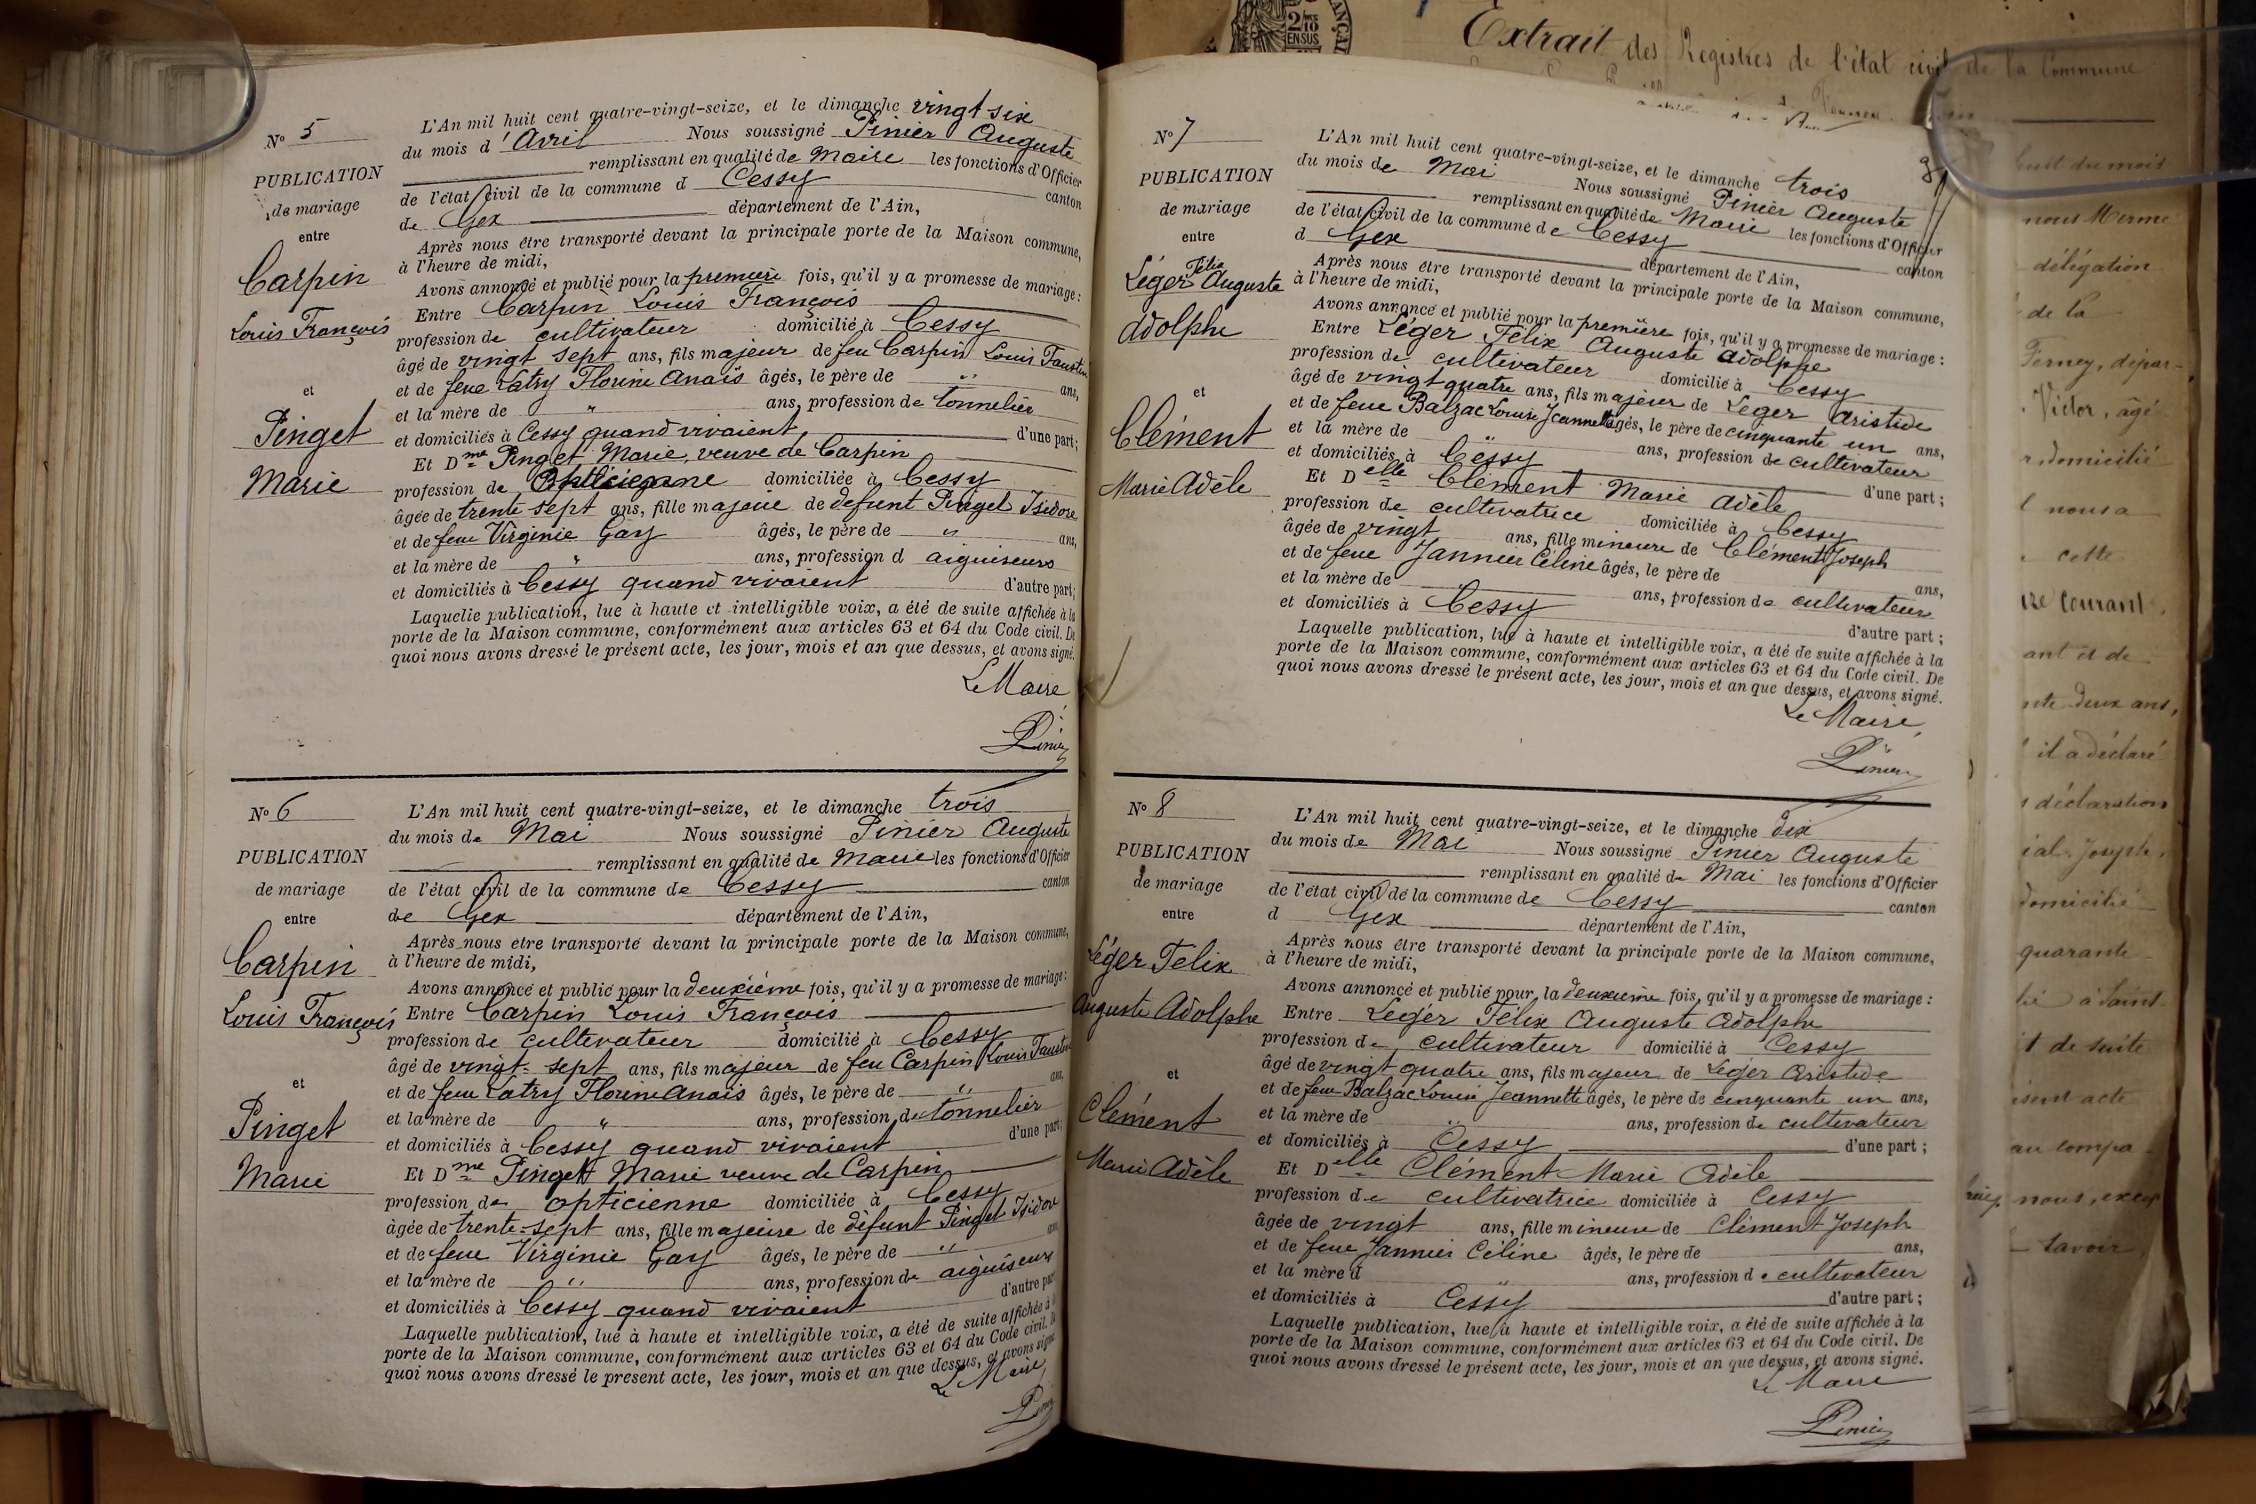 N° 5
PUBLICATION
de mariage
entre
Carpin
Louis François
et
Pinget
Marie
L'An mil huit cent quatre-vingt-seize, et le dimanche vingt six
du mois d'Avril Nous soussigné Pinier Auguste
remplissant en qualité de Maire les fonctions d'Officier
de l'état civil de la commune d Cessy canton
de Gex département de l'Ain,
Après nous être transporté devant la principale porte de la Maison commune,
à l'heure de midi,
Avons annoncé et publié pour la première fois, qu'il y a promesse de mariage :
Entre Carpin Louis François
profession de cultivateur domicilié à Cessy
âgé de vingt sept ans, fils majeur de feu Carpin Louis Faustin
et de feue Latry Florine Anaïs âgés, le père de " ans,
et la mère de " ans, profession de tonnelier
et domiciliés à Cessy quand vivaient d'une part ;
Et Dme Pinget Marie, veuve de Carpin
profession de Opticienne domiciliée à Cessy
âgée de trente sept ans, fille majeure de défunt Pinget Isidore
et de feue Virginie Gay âgés, le père de " ans,
et la mère de " ans, profession d aiguiseurs
et domiciliés à Cessy quand vivaient d'autre part ;
Laquelle publication, lue à haute et intelligible voix, a été de suite affichée à la
porte de la Maison commune, conformément aux articles 63 et 64 du Code civil. De
quoi nous avons dressé le présent acte, les jour, mois et an que dessus, et avons signé.
Le Maire
Pinier
N° 6
PUBLICATION
de mariage
entre
Carpin
Louis François
et
Pinget
Marie
L'An mil huit cent quatre-vingt-seize, et le dimanche trois
du mois de Mai Nous soussigné Pinier Auguste
remplissant en qualité de Maire les fonctions d'Officier
de l'état civil de la commune de Cessy canton
de Gex département de l'Ain,
Après nous être transporté devant la principale porte de la Maison commune,
à l'heure de midi,
Avons annoncé et publié pour la deuxième fois, qu'il y a promesse de mariage :
Entre Carpin Louis François
profession de cultivateur domicilié à Cessy
âgé de vingt-sept ans, fils majeur de feu Carpin Louis Faustin
et de feue Latry Florine Anaïs âgés, le père de " ans,
et la mère de " ans, profession de tonnelier
et domiciliés à Cessy quand vivaient d'une part ;
Et Dme Pinget Marie veuve de Carpin
profession de opticienne domiciliée à Cessy
âgée de trente-sept ans, fille majeure de défunt Pinget Isidore
et de feue Virginie Gay âgés, le père de " ans,
et la mère de " ans, profession de aiguiseurs
et domiciliés à Cessy quand vivaient d'autre part
Laquelle publication, lue à haute et intelligible voix, a été de suite affichée à la
porte de la Maison commune, conformément aux articles 63 et 64 du Code civil. De
quoi nous avons dressé le présent acte, les jour, mois et an que dessus, et avons signé
Le Maire
Pinier
N° 7
PUBLICATION
de mariage
entre
Félix
Léger Auguste
Adolphe
et
Clément
Marie Adèle
L'An mil huit cent quatre-vingt-seize, et le dimanche trois
du mois de Mai Nous soussigné Pinier Auguste
remplissant en qualité de Maire les fonctions d'Officier
de l'état civil de la commune de Cessy canton
d Gex département de l'Ain,
Après nous être transporté devant la principale porte de la Maison commune,
à l'heure de midi,
Avons annoncé et publié pour la première fois, qu'il y a promesse de mariage :
Entre Léger Félix Auguste Adolphe
profession de cultivateur domicilié à Cessy
âgé de vingt quatre ans, fils majeur de Léger Aristide
et de feue Balzac Louise Jeannette âgés, le père de cinquante un ans,
et la mère de " ans, profession de cultivateur
et domiciliés à Cessy d'une part ;
Et Delle Clément Marie Adèle
profession de cultivatrice domiciliée à Cessy
âgée de vingt ans, fille mineure de Clément Joseph
et de feue Jannier Céline âgés, le père de ans,
et la mère de ans, profession de cultivateur
et domiciliés à Cessy d'autre part ;
Laquelle publication, lue à haute et intelligible voix, a été de suite affichée à la
porte de la Maison commune, conformément aux articles 63 et 64 du Code civil. De
quoi nous avons dressé le présent acte, les jour, mois et an que dessus, et avons signé.
Le Maire,
Pinier
N° 8
PUBLICATION
de mariage
entre
Léger Felix
Auguste Adolphe
et
Clément
Marie Adèle
L'An mil huit cent quatre-vingt-seize, et le dimanche dix
du mois de Mai Nous soussigné Pinier Auguste
remplissant en qualité de Mai les fonctions d'Officier
de l'état civil de la commune de Cessy canton
d Gex département de l'Ain,
Après nous être transporté devant la principale porte de la Maison commune,
à l'heure de midi,
Avons annoncé et publié pour la deuxième fois, qu'il y a promesse de mariage :
Entre Léger Félix Auguste Adolphe
profession de cultivateur domicilié à Cessy
âgé de vingt quatre ans, fils majeur de Léger Aristide
et de feue Balzac Louise Jeannette âgés, le père de cinquante un ans,
et la mère de " ans, profession de cultivateur
et domiciliés à Cessy d'une part ;
Et Delle Clément Marie Adèle
profession de cultivatrice domiciliée à Cessy
âgée de vingt ans, fille mineure de Clément Joseph
et de feue Jannier Céline âgés, le père de ans,
et la mère d " ans, profession de cultivateur
et domiciliés à Cessy d'autre part ;
Laquelle publication, lue à haute et intelligible voix, a été de suite affichée à la
porte de la Maison commune, conformément aux articles 63 et 64 du Code civil. De
quoi nous avons dressé le présent acte, les jour, mois et an que dessus, et avons signé.
Le Maire
Pinier
2/10
EN SUS
Extrait des Registres de l'état civil de la Commune
du mois
nous Mermet
délégation
de la
Ferney, dépar-
Victor, âgé
domicilié
nous a
cette
courant,
ant et de
deux ans,
il a déclaré
déclaration
Joseph,
domicilié
quarante
à Saint
de suite
acte
nous, excep
savoir